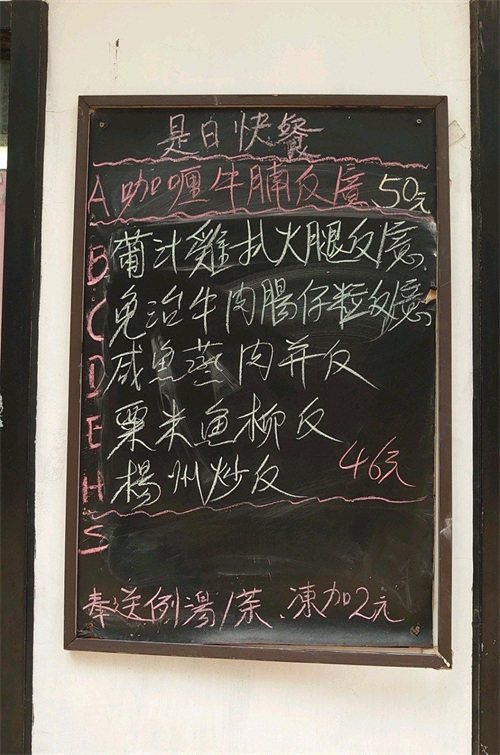 是日快餐
A 咖喱牛腩反意 50元
B 葡汁雞扒火腿反意
C 免治牛肉腸仔粒反意
D 咸魚蒸肉并反
E 粟米魚柳反
H 楊州炒反 46元
S
奉送例湯/茶、凍加2元